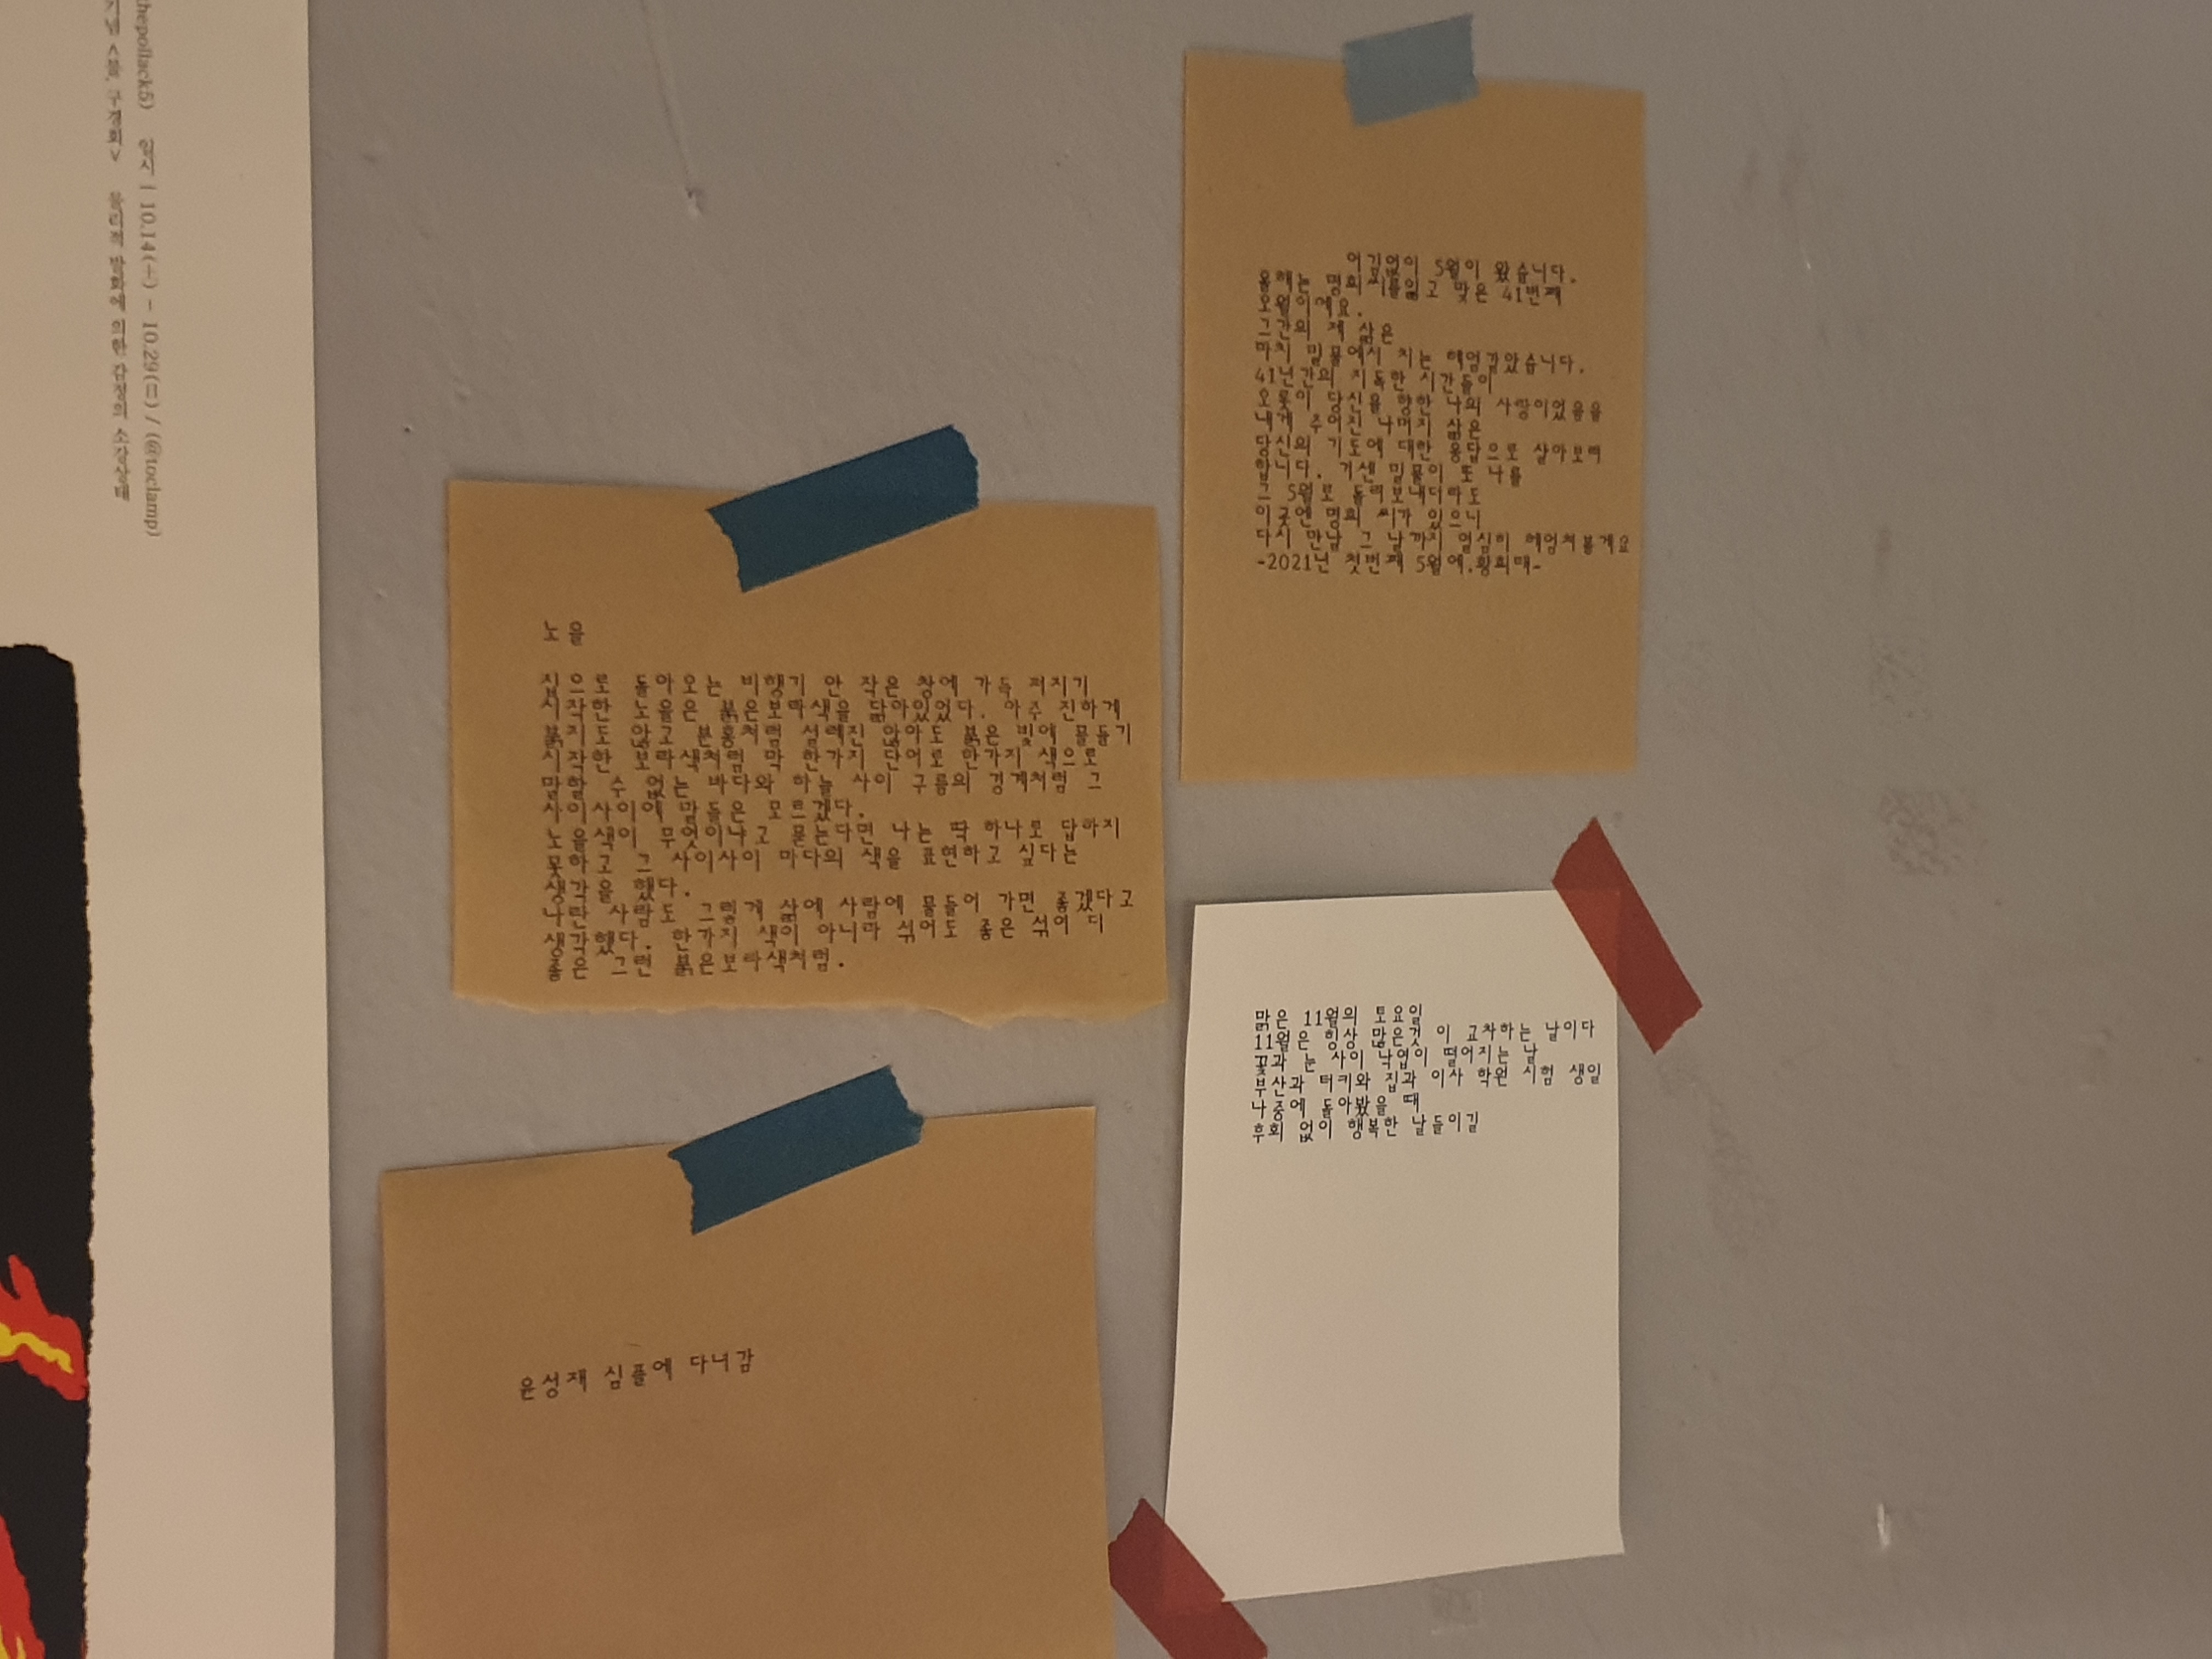 thepollack5)   일시 | 10.14(土) - 10.29(日) / (@toclamp)
기념 <불, 구경회>   물리적 발화에 의한 감정의 소강상태
노을
집으로 돌아오는 비행기 안 작은 창에 가득 퍼지기
시작한 노을은 붉은보라색을 닮아있었다. 아주 진하게
붉지도 않고 분홍처럼 설레진 않아도 붉은 빛에 물들기
시작한 보라색처럼 막 한가지 단어로 한가지 색으로
말할 수 없는 바다와 하늘 사이 구름의 경계처럼 그
사이사이에 말들은 모르겠다.
노을색이 무엇이냐고 묻는다면 나는 딱 하나로 답하지
못하고 그 사이사이 마다의 색을 표현하고 싶다는
생각을 했다.
나란 사람도 그렇게 삶에 사람에 물들어 가면 좋겠다고
생각했다. 한가지 색이 아니라 섞어도 좋은 섞이 디
좋은 그런 붉은보라색처럼.
윤성재 심플에 다녀감
어김없이 5월이 왔습니다.
올해는 명희 씨를잃고 맞은 41번째
오월이예요.
그간의 제 삶은
마치 밀물에서 치는 헤엄같았습니다.
41년간의 지독한 시간들이
오롯이 당신을 향한 나의 사랑이었음을
내게 주어진 나머지 삶은
당신의 기도에 대한 응답으로 살아보려
합니다. 거센 밀물이 또 나를
그 5월로 돌려보내더라도
이곳엔 명희 씨가 있으니
다시 만날 그 날까지 열심히 헤엄쳐볼게요
-2021년 첫번째 5월에.황희태-
맑은 11월의 토요일
11월은 항상 많은것 이 교차하는 날이다
꽃과 눈 사이 낙엽이 떨어지는 날
부산과 터키와 집과 이사 학원 시험 생일
나중에 돌아봤을 때
후회 없이 행복한 날들이길